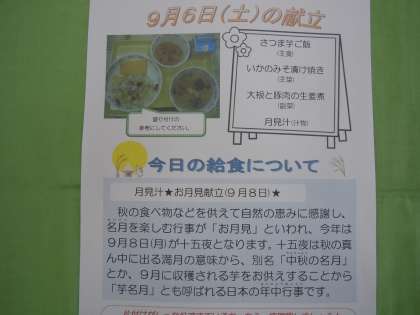 9月6日(土)の献立
さつま芋ご飯
(主食)
いかのみそ漬け焼き
(主菜)
大根と豚肉の生姜煮
(副菜)
月見汁(汁物)
盛り付けの
参考にしてください。
今日の給食について
月見汁★お月見献立(9月8日)★
秋の食べ物などを供えて自然の恵みに感謝し、
名月を楽しむ行事が「お月見」といわれ、今年は
9月8日(月)が十五夜となります。十五夜は秋の真
ん中に出る満月の意味から、別名「中秋の名月」
とか、9月に収穫される芋をお供えすることから
「芋名月」とも呼ばれる日本の年中行事です。